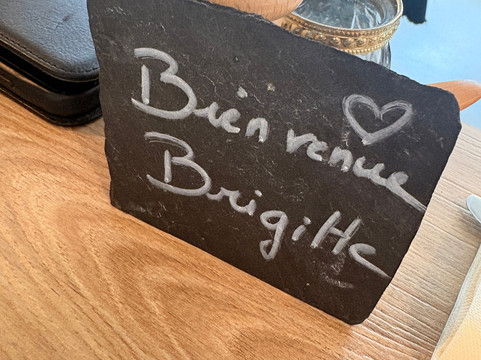 Bienvenue
Brigitte